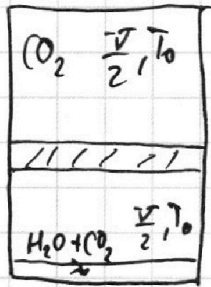 CO₂ V/2, T₀
V/2, T₀
H₂O + CO₂